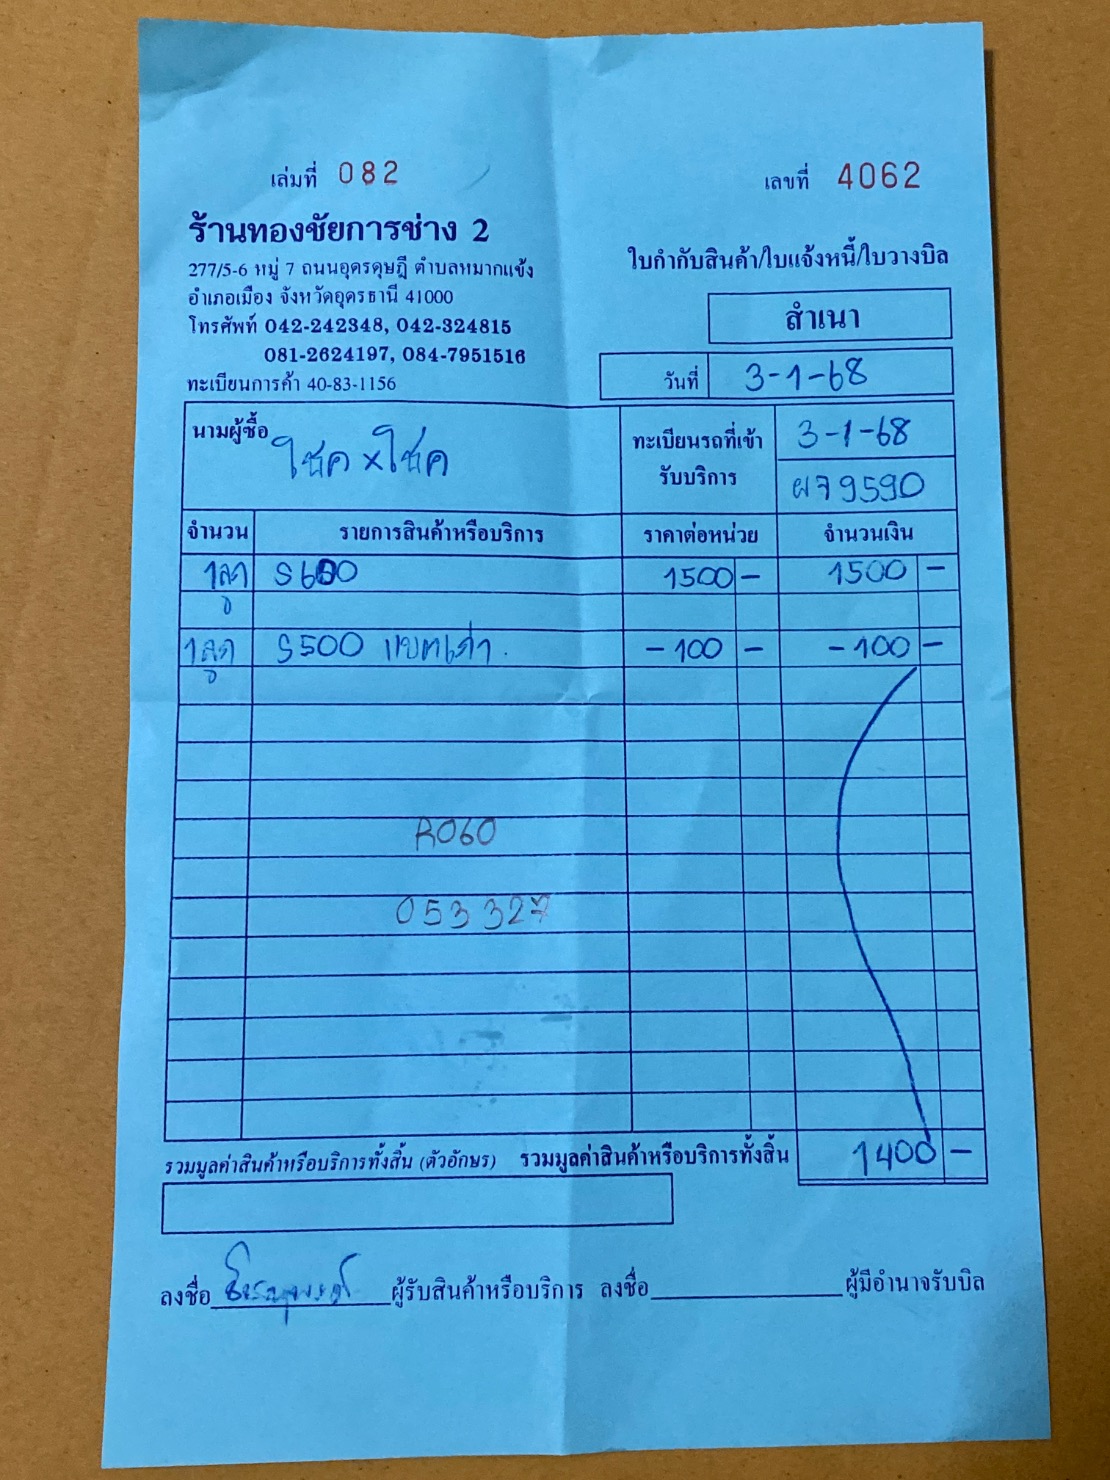 เล่มที่ 082
เลขที่ 4062
ร้านทองชัยการช่าง 2
277/5-6 หมู่ 7 ถนนอุดรดุษฎี ตำบลหมากแข้ง
อำเภอเมือง จังหวัดอุดรธานี 41000
โทรศัพท์ 042-242348, 042-324815
081-2624197, 084-7951516
ทะเบียนการค้า 40-83-1156
ใบกำกับสินค้า/ใบแจ้งหนี้/ใบวางบิล
สำเนา
วันที่ 3-1-68
นามผู้ซื้อ โชค x โชค
ทะเบียนรถที่เข้ารับบริการ 3-1-68
79590
จำนวน รายการสินค้าหรือบริการ ราคาต่อหน่วย จำนวนเงิน
1ลูก 1500 - 1500 -
1ลูก S500 แบตเก่า. -100 - -100 -
R060
053327
รวมมูลค่าสินค้าหรือบริการทั้งสิ้น (ตัวอักษร) รวมมูลค่าสินค้าหรือบริการทั้งสิ้น 1400 -
ลงชื่อ ผู้รับสินค้าหรือบริการ ลงชื่อ ผู้มีอำนาจรับบิล